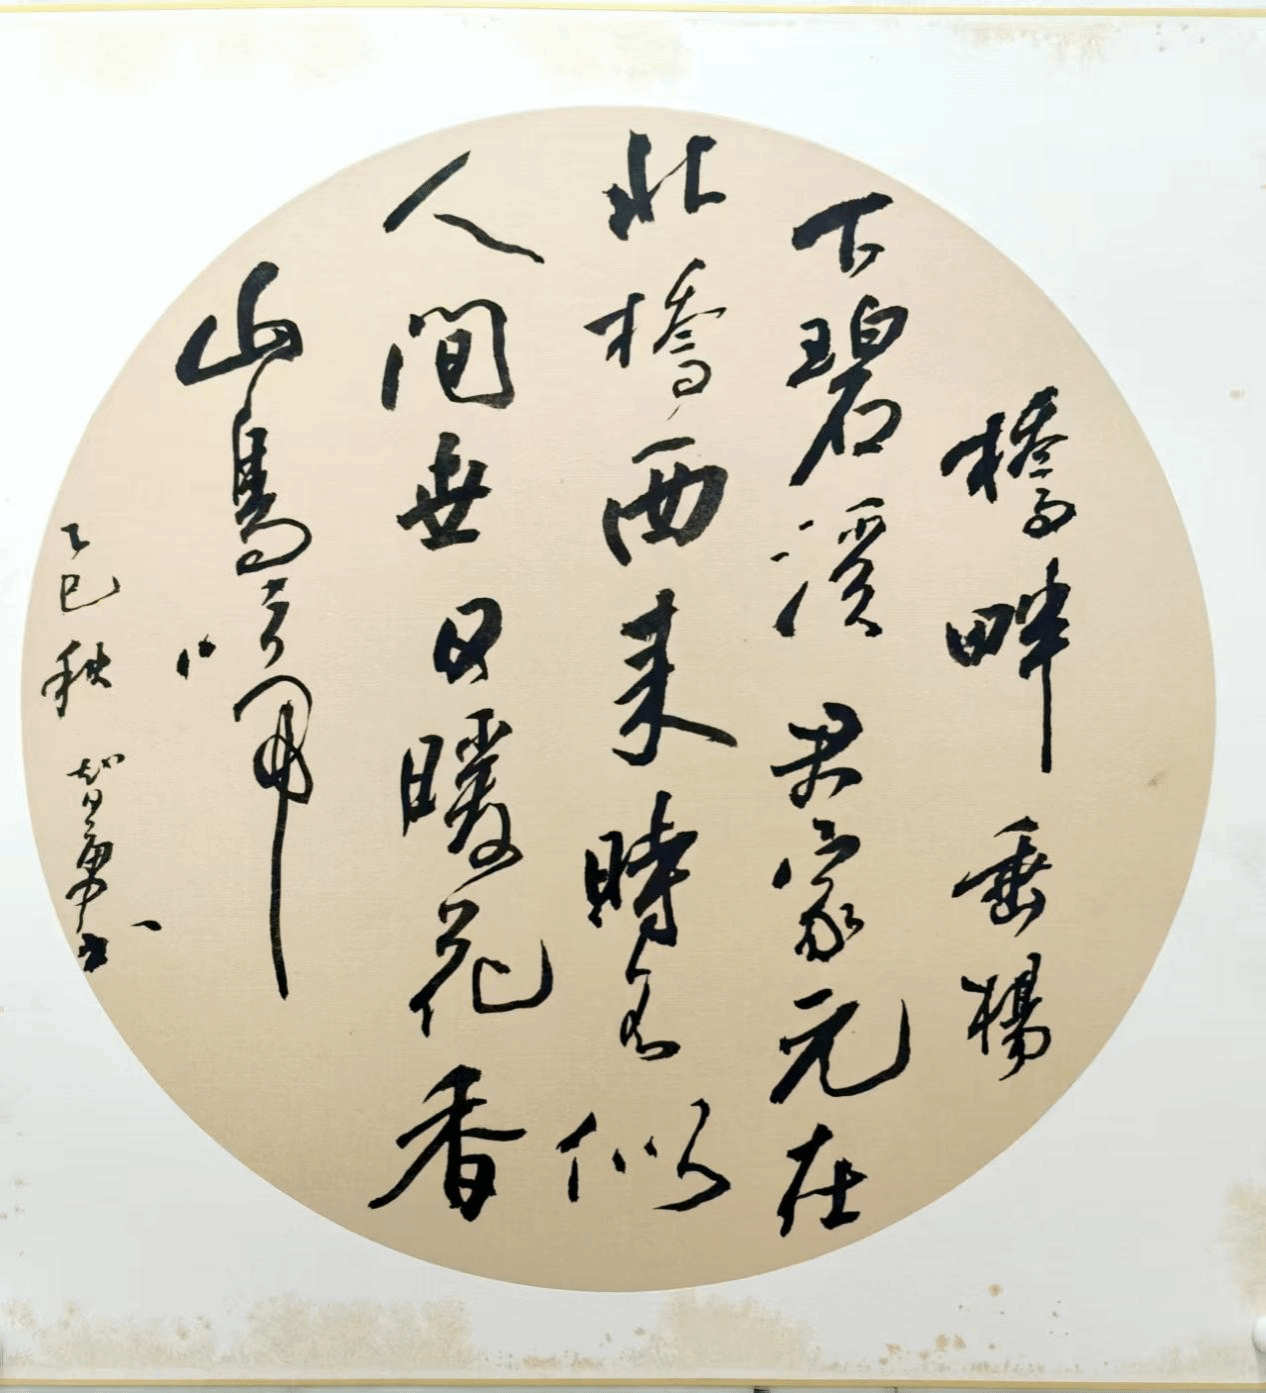 橋畔垂楊
下碧溪君家元在
北橋西来時不似
人間世日暖花香
山鳥啼
乙巳秋智书